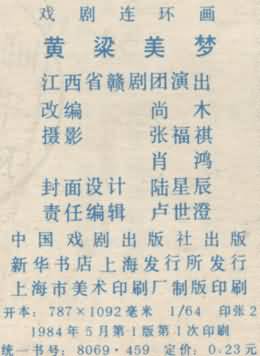 戏剧连环画
黄粱美梦
江西省赣剧团演出
改编 尚木
摄影 张福祺
肖鸿
封面设计 陆星辰
责任编辑 卢世澄
中国戏剧出版社出版
新华书店上海发行所发行
上海市美术印刷厂制版印刷
开本：787×1092毫米 1/64 印张2
1984年5月第1版第1次印刷
统一书号：8069·459 定价：0.23元